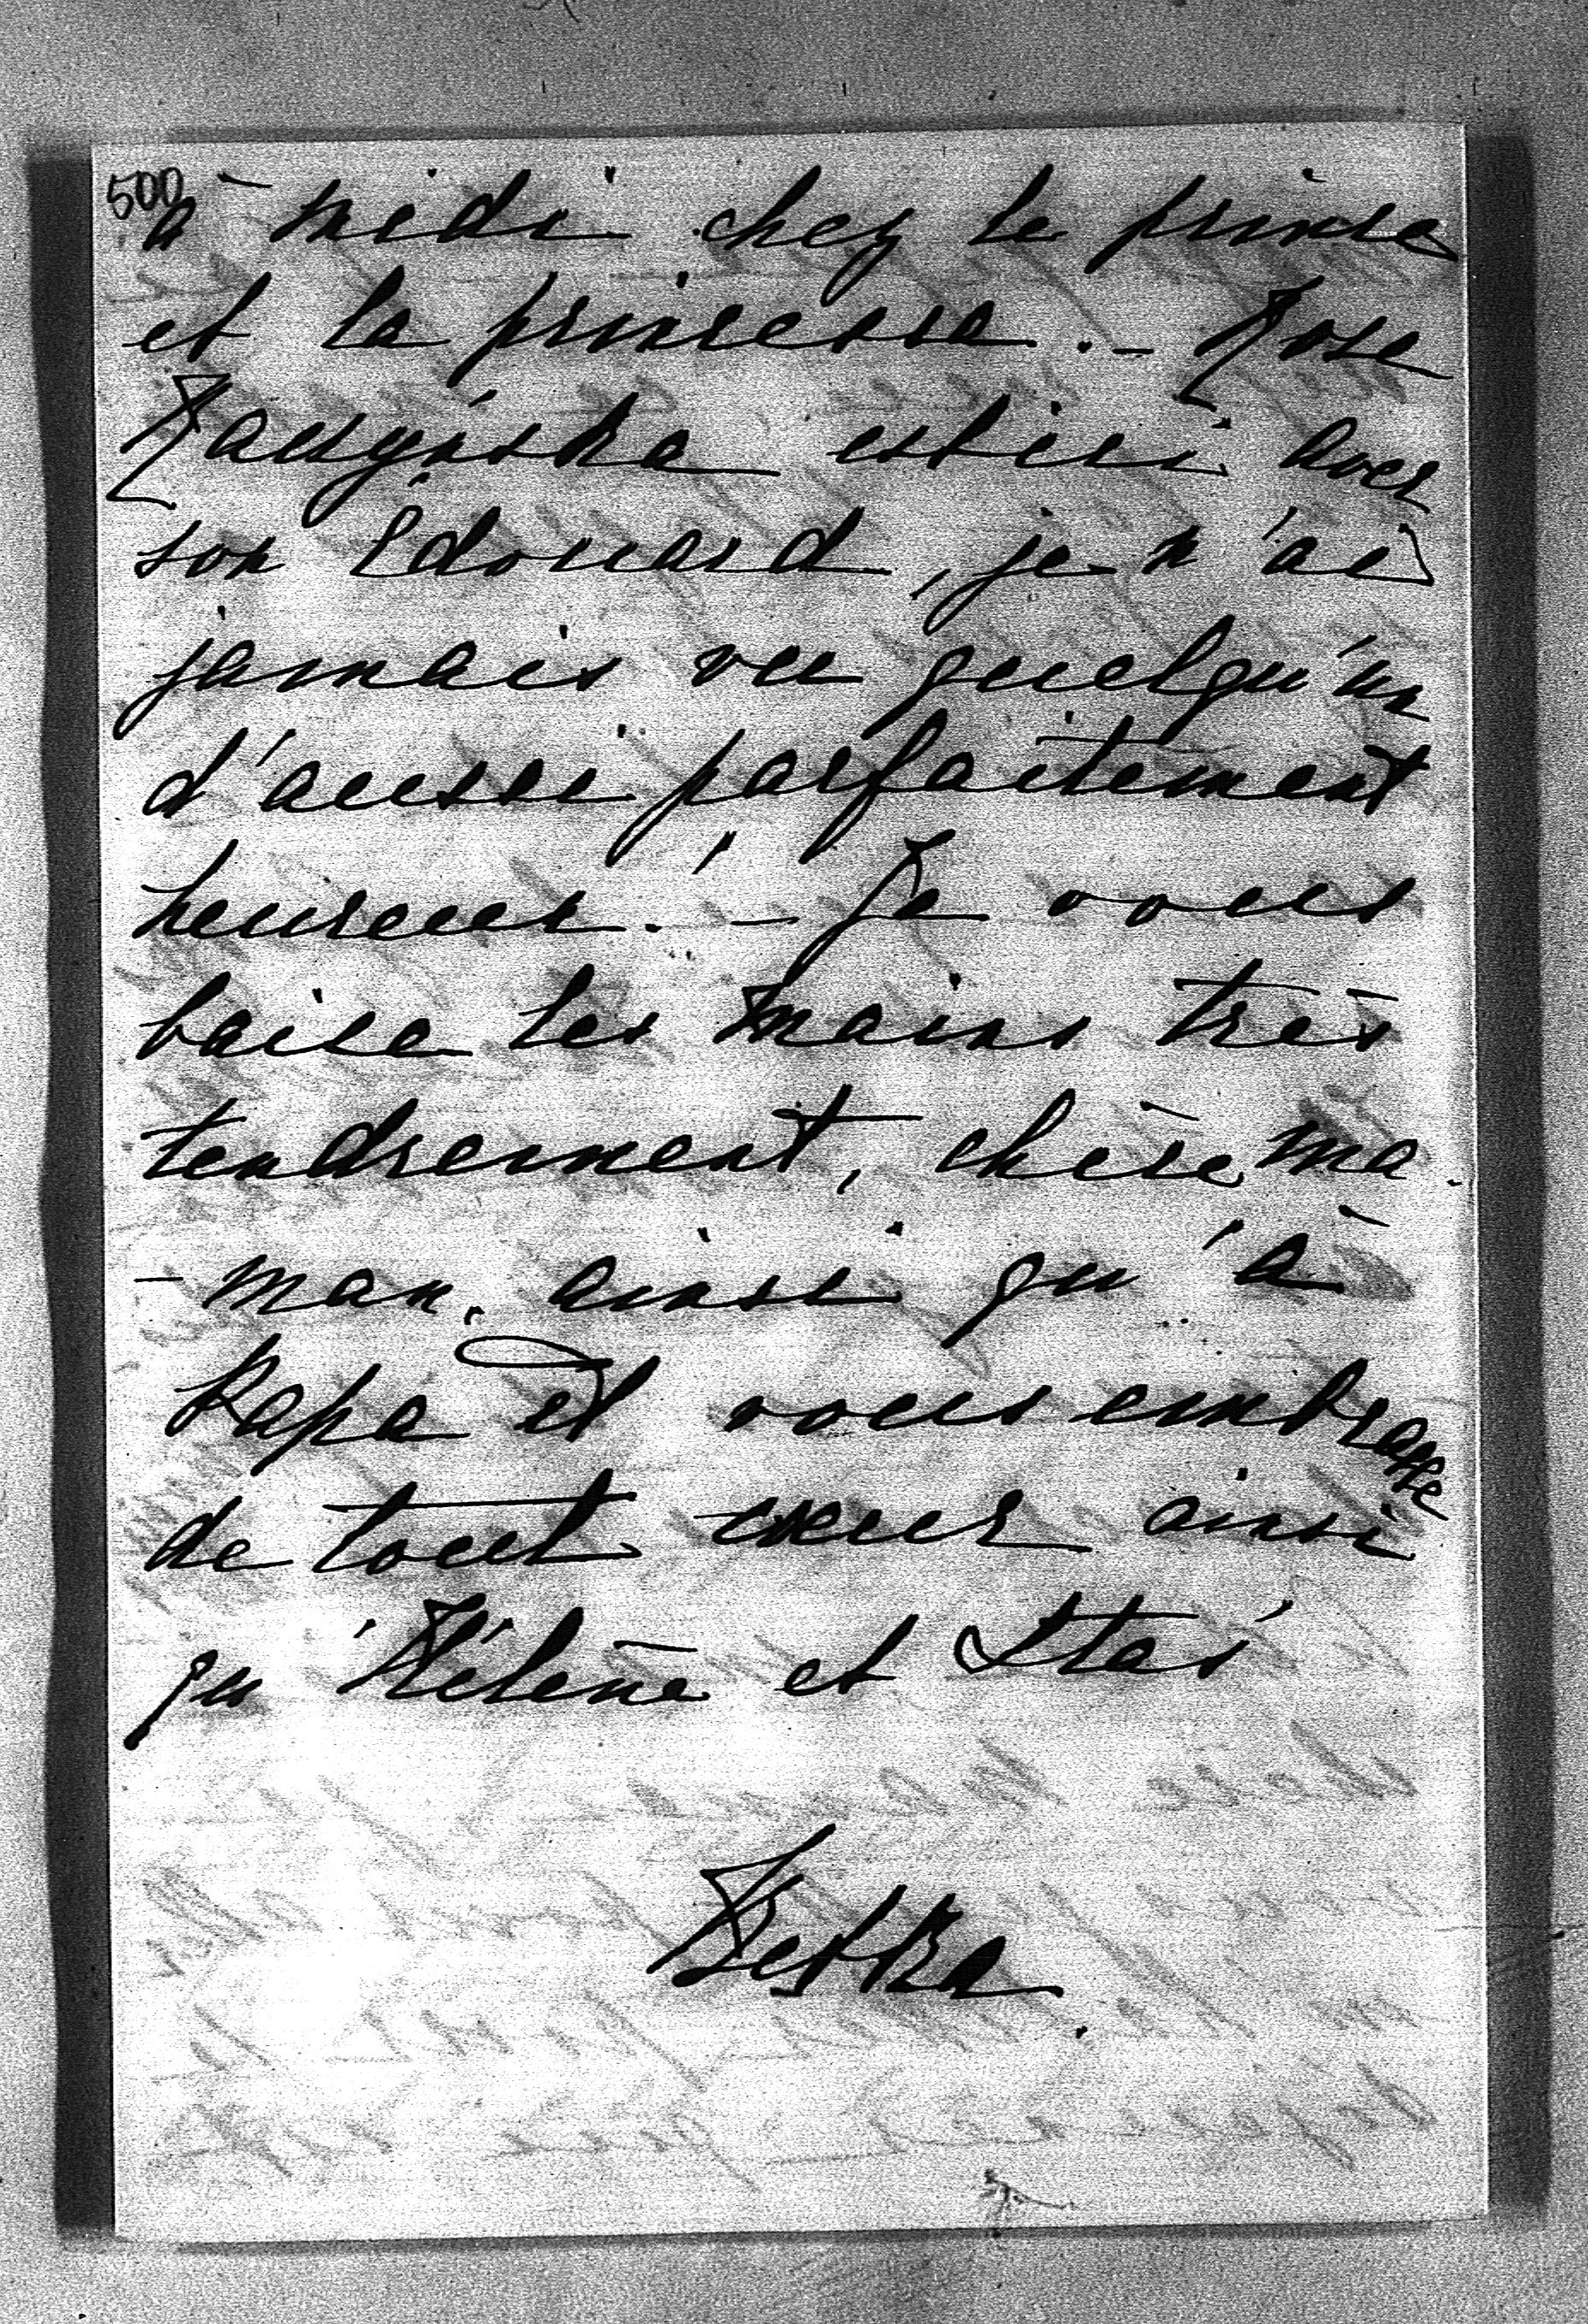 500
à midi chez le prince
et la princesse. – Rose
Raczyńska est ici avec
son Edouard, je n'ai
jamais vu quelqu'un
d'aussi parfaitement
heureux. – Je vous
baise les mains très
tendrement, chère ma
- man, ainsi qu'à
Papa et vous embrasse
de tout cœur ainsi
qu'Hélène et Staś
Betka.